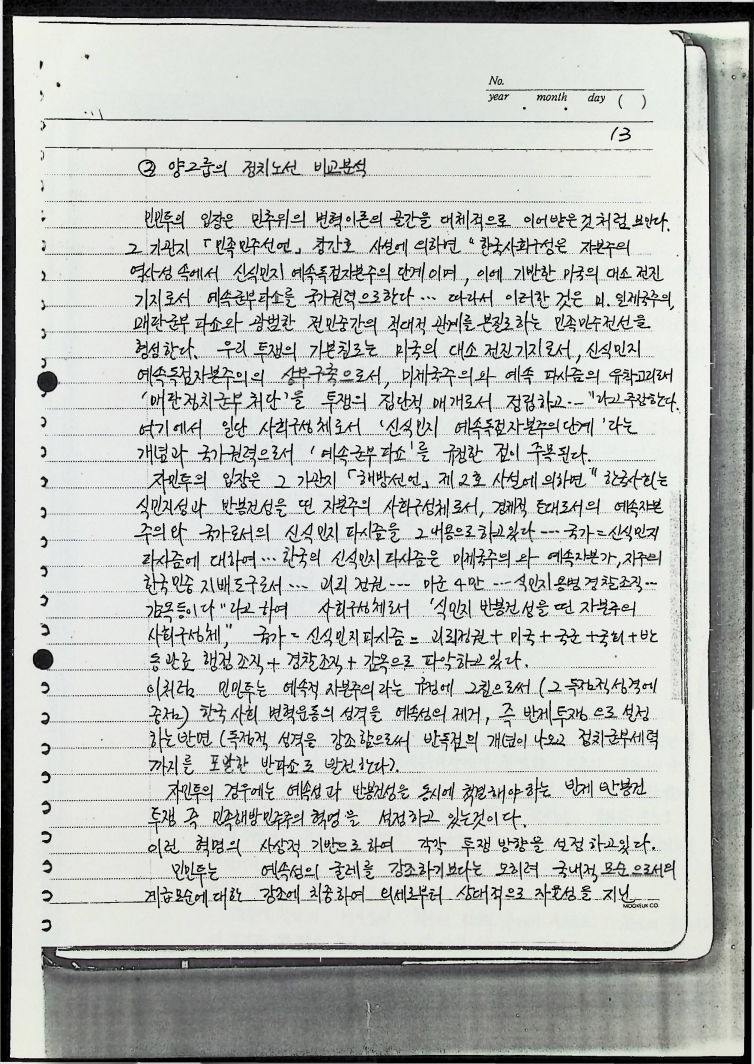 No.
year . month . day ( )
13
② 양그룹의 정치노선 비교분석
민민투의 입장은 민추위의 변혁이론의 골간을 대체적으로 이어받은것처럼 보인다.
그 기관지 「민족민주선언」 창간호 사설에 의하면 "한국사회구성은 자본주의
역사성 속에서 신식민지 예속독점자본주의 단계이며, 이에 기반한 미국의 대소 전진
기지로서 예속군부파쇼를 국가권력으로한다 … 따라서 이러한 것은 미.일제국주의,
매판군부 파쇼와 광범한 전민중간의 적대적 관계를 본질로하는 민족민주전선을
형성한다. 우리 투쟁의 기본침로는 미국의 대소 전진기지로서, 신식민지
예속독점자본주의의 상부구축으로서, 미제국주의와 예속 파시즘의 유착고리로서
'매판정치군부최단'을 투쟁의 집단적 매개로서 정립하고…"라고 주장한다.
여기에서 일단 사회구성체로서 '신식민지 예속독점자본주의단계'라는
개념과 국가권력으로서 '예속군부파쇼'를 규정한 점이 주목된다.
자민투의 입장은 그 기관지 「해방선언」 제2호 사설에 의하면 "한국사회는
식민지성과 반봉건성을 띤 자본주의 사회구성체로서, 경제적 토대로서의 예속자본
주의와 국가로서의 신식민지 파시즘을 그 내용으로하고있다 --- 국가=신식민지
파시즘에 대하여 … 한국의 신식민지 파시즘은 미제국주의와 예속자본가, 지주의
한국민중 지배도구로서 … 괴뢰 정권 --- 미군 4만 --- 식민지용병 경찰조직 …
감옥등이다"라고 하여 사회구성체로서 '식민지 반봉건성을 띤 자본주의
사회구성체," 국가 = 신식민지파시즘 = 괴뢰정권 + 미국 + 국군 + 국회 + 반
동관료 행정조직 + 경찰조직 + 감옥으로 파악하고 있다.
이처럼 민민투는 예속적 자본주의라는 규정에 그침으로서 (그 독점적성격에
중점) 한국사회 변혁운동의 성격을 예속성의 제거, 즉 반제투쟁으로 설정
하는반면 (독점적 성격을 강조함으로써 반독점의 개념이 나오고 정치군부세력
까지를 포괄한 반파쇼로 발전한다).
자민투의 경우에는 예속성과 반봉건성을 동시에 척결해야하는 반제 반봉건
투쟁 즉 민족해방민주주의 혁명을 설정하고 있는것이다.
이런 혁명의 사상적 기반으로 하여 각각 투쟁 방향을 설정하고있다.
민민투는 예속성의 굴레를 강조하기보다는 오히려 국내적 모순으로서의
계급모순에대한 강조에 치중하여 외세로부터 상대적으로 자율성을 지닌
MOOKEUK CO.